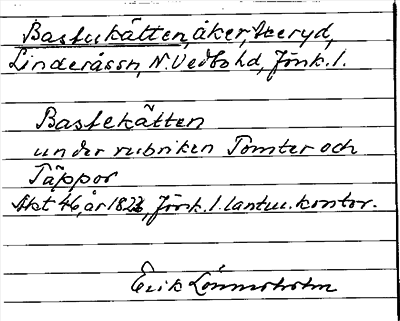 Bastukätten, åker,
Linderåssn, N. Vedbohd, Jönk. l.
Bastekätten
under rubriken Tomter och
Täppor
Akt 46, år, Jönk. l. lantm. kontor.
Erik